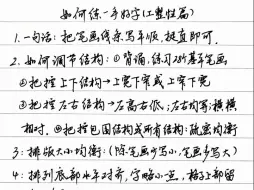 如何练一手好字(工整性篇)
1.一句话：把笔画线条写平顺，挺直即可.
2.如何调节结构：①背诵，练习28种基本笔画
②把控上下结构→上宽下窄或上窄下宽
③把控左右结构→左高右低；左右均等；横横
相对.④把控包围结构或所有结构：疏密均衡
3：排版大小均衡：(除笔画少写小，笔画多写大)
4：排列底部水平对齐，字略小一点，格子上部留